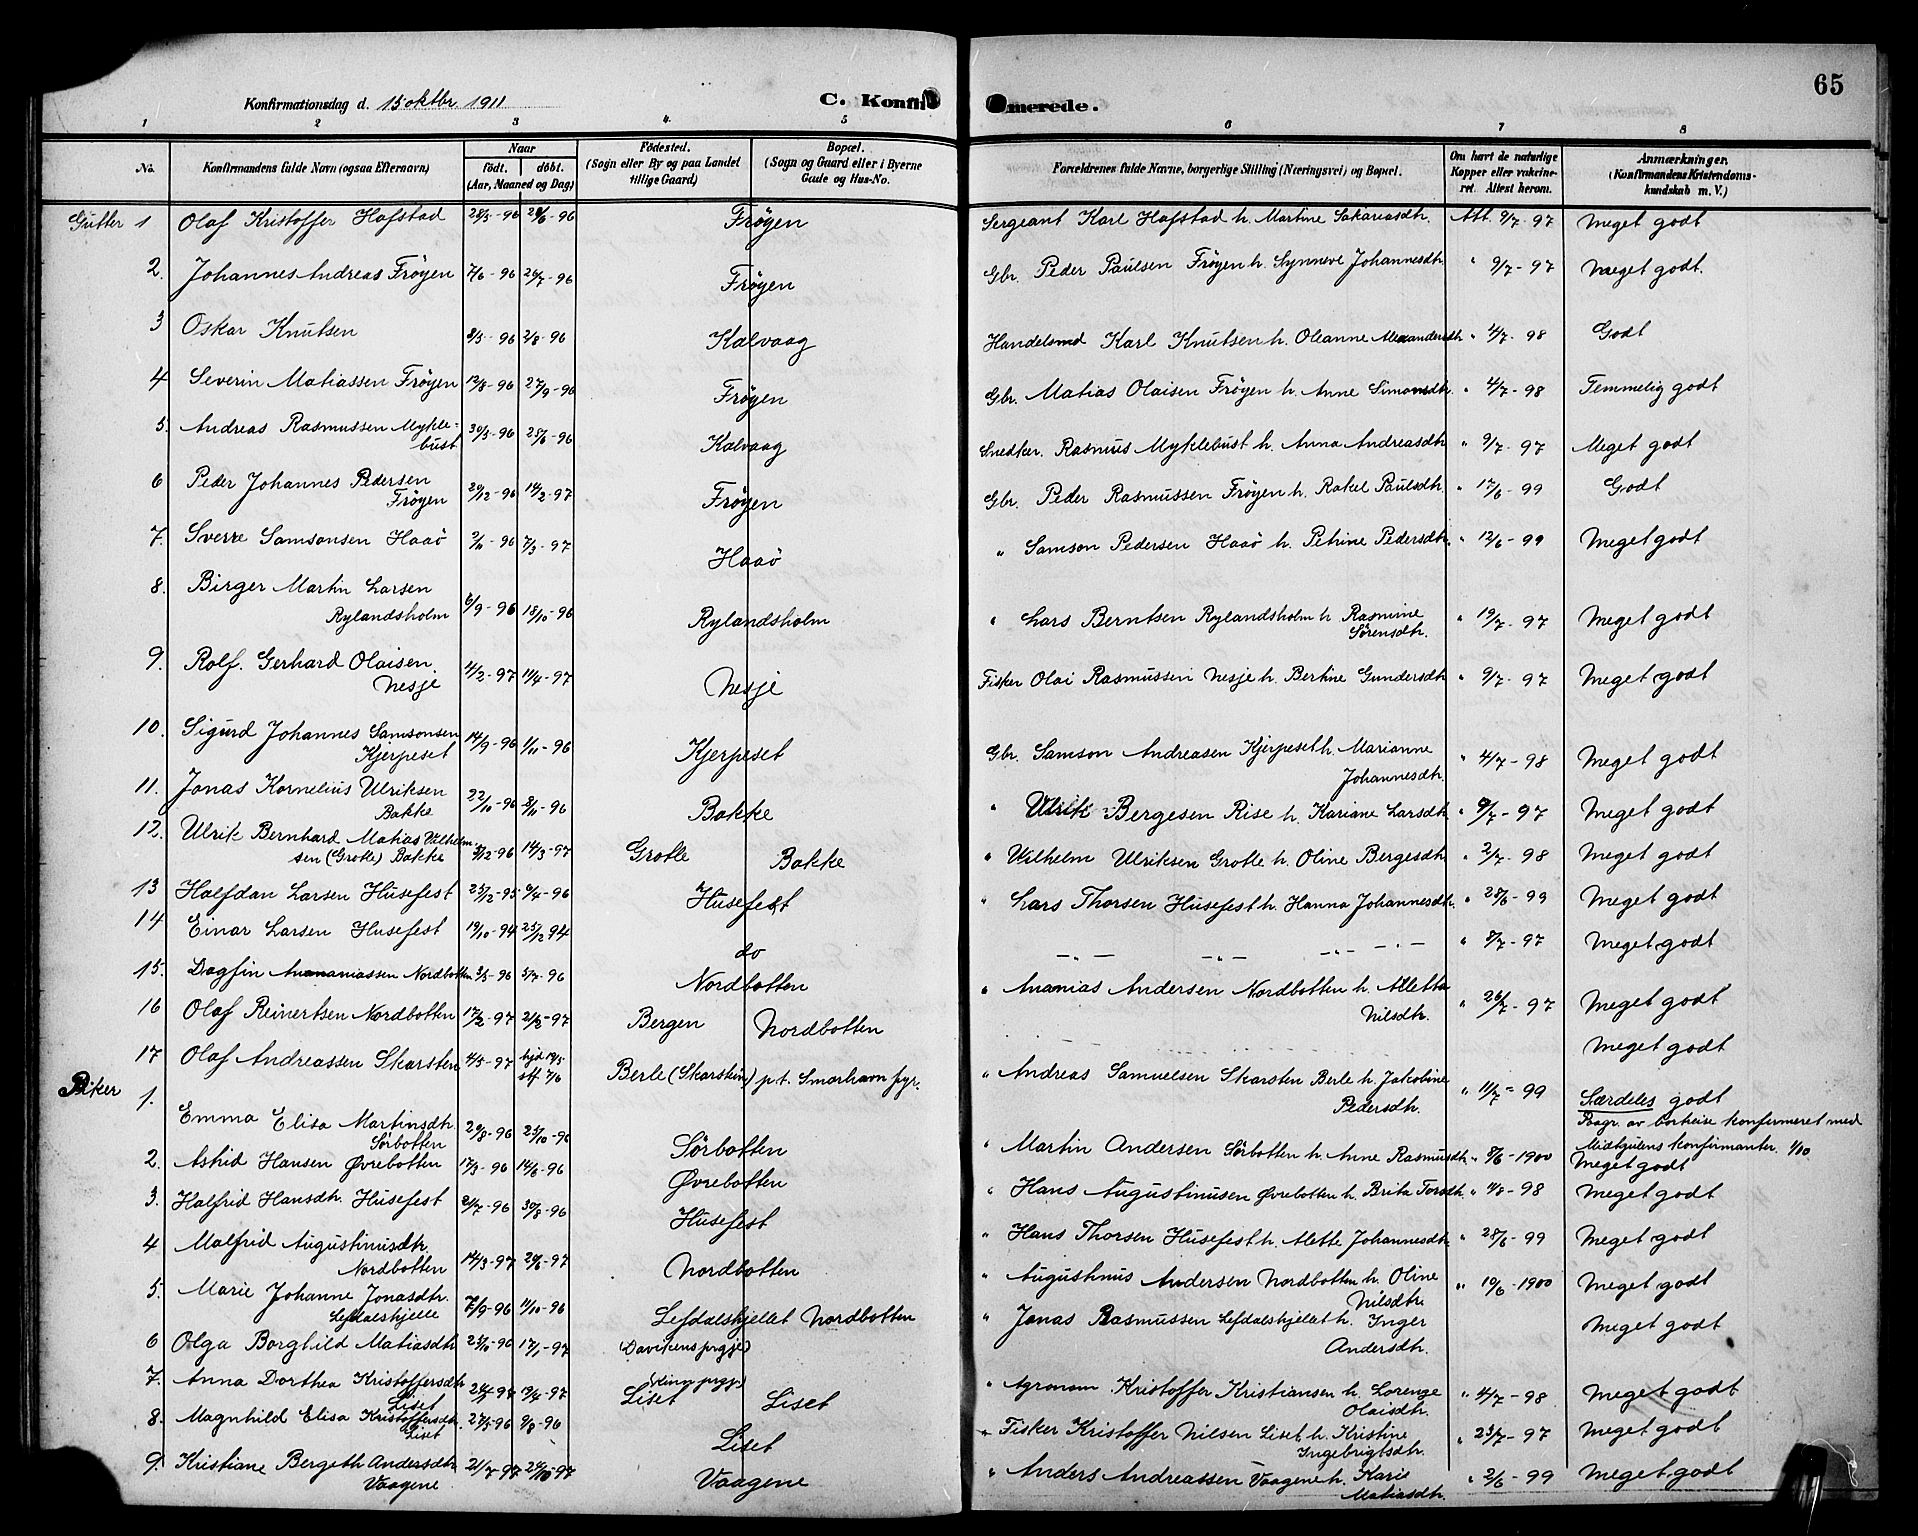 65
Konfirmationsdag d. 15 oktbr. 1911
C. Konfirmerede.
1 2 3 4 5 6 7 8
No. Konfirmandens fulde Navn (ogsaa Efternavn) Naar født. døbt. (Aar, Maaned og Dag) Fødested. (Sogn eller By og paa Landet tillige Gaard) Bopæl. (Sogn og Gaard eller i Byerne Gade og Hus-No. Forældrenes fulde Navne, borgerlige Stilling (Næringsvei) og Bopæl. Om havt de naturlige Kopper eller vakcineret. Attest herom. Anmærkninger. (Konfirmandens Kristendomskundskab m. V.)
Gutter 1 Olaf Kristoffer Hofstad Frøyen Sergeant Karl Hofstad h. Martine Sakariasdtr. Att. 9/7-97 Meget godt
2. Johannes Andreas Frøyen 7/6-96 26/7-96 Frøyen Gbr. Peder Paulsen Frøyen h. Synneve Johannesdtr. " 9/7-97 Meget godt.
3 Oskar Knutsen 8/5-96 2/8-96 Kalvaag Handelsmd Karl Knutsen h. Oleanne Alexandersdtr " 4/7-98 Godt
4 Severin Matiassen Frøyen 12/8-96 27/9-96 Frøyen Gbr. Matias Olaisen Frøyen h. Anne Simonsdtr. " 4/7-98 Temmelig godt
5. Andreas Rasmussen Myklebust 30/5-96 25/6-96 Kalvaag Snedker. Rasmus Myklebust h. Anna Andreasdtr " 9/7-97 Meget godt
6 Peder Johannes Pedersen Frøyen 20/12-96 14/2-97 Frøyen Gbr. Peder Rasmussen Frøyen h. Rakel Paulsdtr. " 17/6-99 Godt
7. Sverre Samsonsen Haaö 2/11-96 7/3-97 Haaö " Samson Pedersen Haaö h. Petrine Pedersdtr. " 12/6-99 Meget godt
8. Birger Martin Larsen Rylandsholm 6/9-96 18/10-96 Rylandsholm " Lars Berntsen Rylandsholm h Rasmine Sörensdtr. " 19/7-97 Meget godt
9. Rolf. Gerhard Olaisen Nesje 4/2-97 11/4-97 Nesje Fisker Olai Rasmussen Nesje h. Bertine Gundersdtr " 9/7-97 Meget godt
10. Sigurd Johannes Samsonsen Kjerpeset 14/9-96 1/11-96 Kjerpeset Gbr. Samson Andreasen Kjerpeset h. Marianne Johannesdtr. " 4/7-98 Meget godt
11. Jonas Kornelius Ulriksen Bakke 22/10-96 8/11-96 Bakke " Ulrik Bergesen Rise h. Kariane Larsdtr " 9/7-97 Meget godt
12. Ulrik Bernhard Matias Vilhelmsen (Grotle) Bakke 14/3-97 Grotle Bakke " Wilhelm Ulriksen Grotle h. Oline Bergesdtr " 2/7-98 Meget godt
13 Halfdan Larsen Husefest 23/12-95 6/4-96 Husefest " Lars Thorsen Husefest h. Hanna Johannesdtr. " 28/6-99 Meget godt
14 Einar Larsen Husefest 19/10-94 25/12 94 do — " — — " — — " — " 8/7-97 Meget godt
15. Dagfin Ananiassen Nordbotten 3/5-96 5/7-96 Nordbotten " Ananias Andersen Nordbotten h. Alletta Nilsdtr. " 26/7-97 Meget godt
16 Olaf Reinertsen Nordbotten Bergen Nordbotten Meget godt
17 Olaf Andreassen Skarsten 4/5-97 hjd 14/5 stf 7/6 Berle (Skarstein) p.t. Smørhavn fyr. " Andreas Samuelsen Skarsten Berle h. Jakobine Pedersdtr. " 11/7-99 Særdeles godt
Paagr. av bortreise konfirmeret med Midtgulens konfirmanter 1/10.
Piker 1. Emma Elisa Martinsdtr. Sörbotten 29/8-96 25/10-96 Sörbotten " Martin Andersen Sörbotten h. Anne Rasmusdtr " 8/6-1900 Meget godt
2. Astrid Hansen Øvrebotten 17/3-96 14/6-96 Øvrebotten " Hans Augustinusen Øvrebotten h. Brita Torsdtr. " 4/8-98 Meget godt
3. Halfrid Hansdtr. Husefest 2/7-96 30/8-96 Husefest " Hans Thorsen Husefest h. Alette Johannesdtr " 28/6-99 Meget godt
4 Malfrid Augustinusdtr. Nordbotten 14/3-97 Nordbotten " Augustinus Andersen Nordbotten h. Oline Nilsdtr. " 19/6-1900 Meget godt
5. Marie Johanne Jonasdtr. Lefdalshjelle 7/9-96 11/10-96 Lefdalshjellet Nordbotten " Jonas Rasmussen Lefdalshjellet h. Inger Andersdtr. Meget godt
6 Olga Borghild Matiasdtr 17/1-97 (Davikens prgj.)
7. Anna Dorthea Kristoffersdtr. Liset Liset Liset " Agronom Kristoffer Kristiansen h. Lorenze Olaisdtr. " 4/7-98 Meget godt
8. Magnhild Elisa Kristoffersdtr. Liset 27/5-96 9/8-96 Liset " Fisker Kristoffer Nilsen Liset h. Kristine Ingebrigtsdtr. " 23/7-97 Meget godt
9. Kristiane Bergeth Andersdtr. Vaagene 21/7-97 24/10-97 Vaagene " Anders Andreassen Vaagene h. Karie Matiasdtr. " 2/6-99 Meget godt